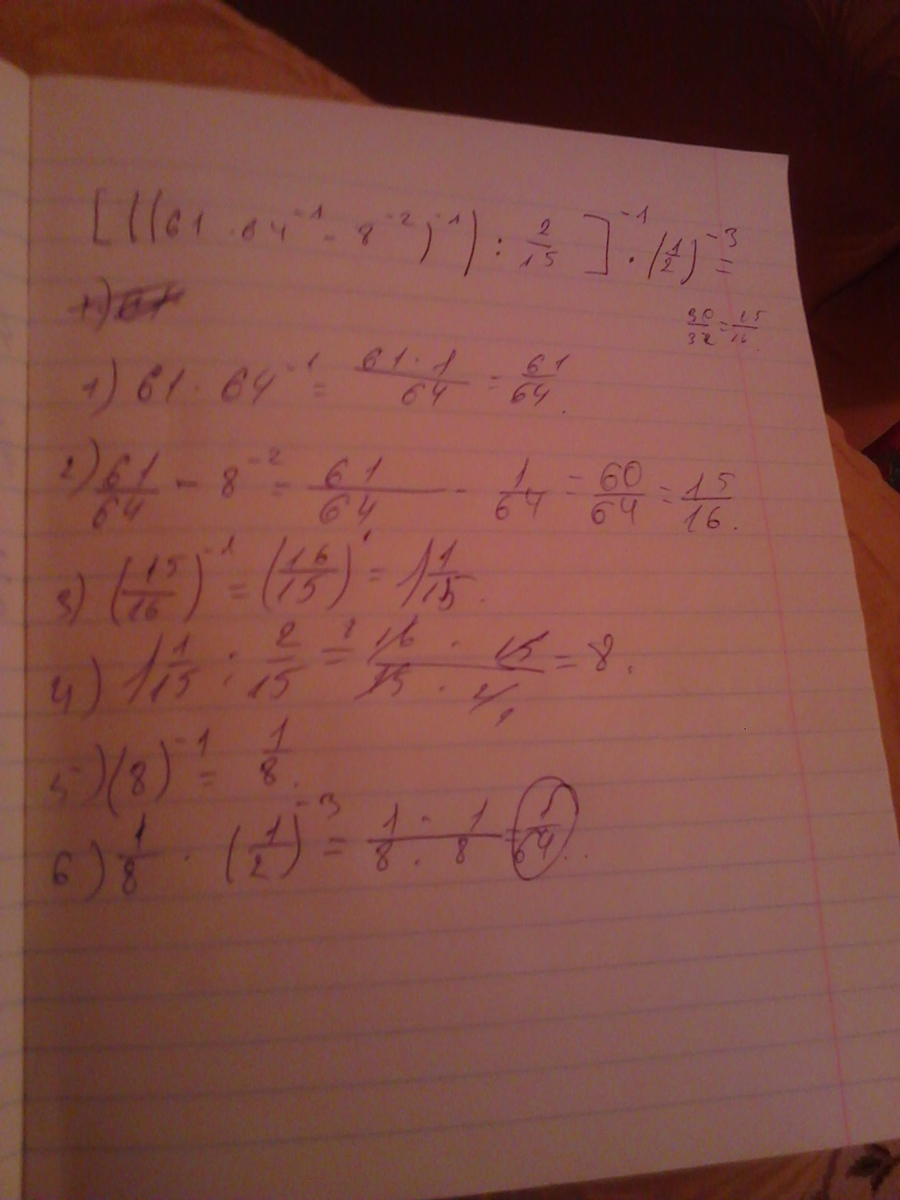 [((61 · 64^-1 - 8^-2)^-1) : 2/15]^-1 · (1/2)^-3 =
30/32 = 15/16.
1) 61 · 64^-1 = 61 · 1/64 = 61/64.
2) 61/64 - 8^-2 = 61/64 - 1/64 = 60/64 = 15/16.
3) (15/16)^-1 = (16/15)^1 = 1 1/15.
4) 1 1/15 : 2/15 = 16 · 15/15 · 2 = 8.
5) (8)^-1 = 1/8.
6) 1/8 · (1/2)^-3 = 1 · 1/8 · 8 = 1/64.